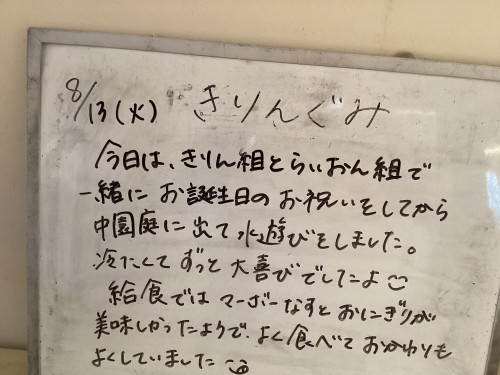 8/13(火) きりんぐみ
今日は、きりん組とらいおん組で
一緒に お誕生日の お祝いをしてから
中園庭に出て水遊びをしました。
冷たくて ずっと 大喜びでしたよ
給食では マーボーなすと おにぎりが
美味しかったようで、よく食べて おかわりも
よくしていました